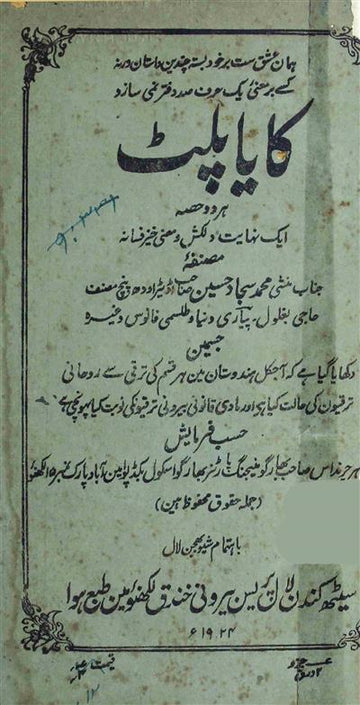 ہمان عشق ست برخود بستہ چندین داستان ورنہ
کسے بر معنی یک حرف صد دفتر نمی سازد
کایا پلٹ
ہر دو حصہ
ایک نہایت دلکش و معنی خیز فسانہ
مصنفۂ
جناب منشی محمد سجاد حسین صاحب اڈیٹر اودھ پنچ مصنف
حاجی بغلول۔ پیاری دنیا و طلسمی فانوس وغیرہ
جسمین
دکھایا گیا ہے کہ آجکل ہندوستان مین ہر قسم کی ترقی سے روحانی
ترقیون کی حالت کیا ہی اور مادی قانونی بیرونی ترقیونکی نوبت کیا پہونچی ہے
حسب فرمایش
ہرچرنداس صاحب بھارگو منیجنگ پارٹنر بھارگو اسکول بکڈپو امین آباد پارک نمبر ۱۵ لکھنؤ
(جملہ حقوق محفوظ ہین)
باہتمام شیو بھجن لال
سیٹھ کندن لال پریس بیرونی خندق لکھنؤ مین طبع ہوا
۱۹۲۴ء
قیمت